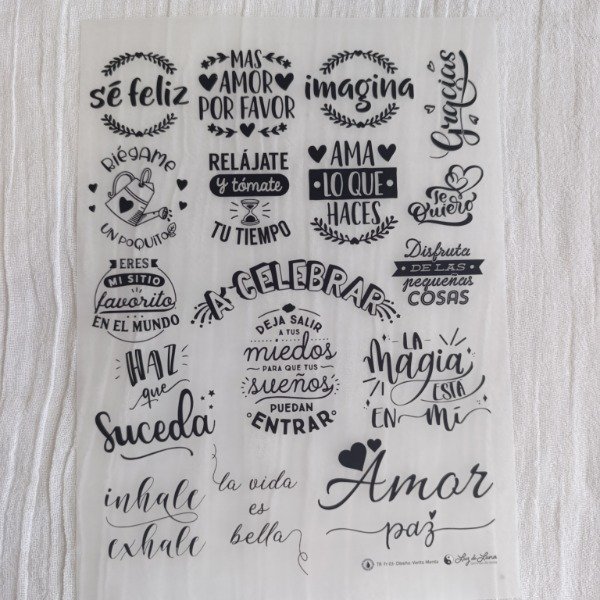 sé feliz
MAS
AMOR
POR FAVOR
imagina
Gracias
RIÉGAME
UN POQUITO
RELÁJATE
y tómate
TU TIEMPO
AMA
LO QUE
HACES
Te
Quiero
ERES
MI SITIO
favorito
EN EL MUNDO
A CELEBRAR
Disfruta
DE LAS
pequeñas
COSAS
HAZ
que
Suceda
DEJA SALIR
A TUS
miedos
PARA QUE TUS
sueños
PUEDAN
ENTRAR
LA
Magia
ESTA
EN Mí
inhale
exhale
la vida
es
bella
Amor
paz
Luz de Luna